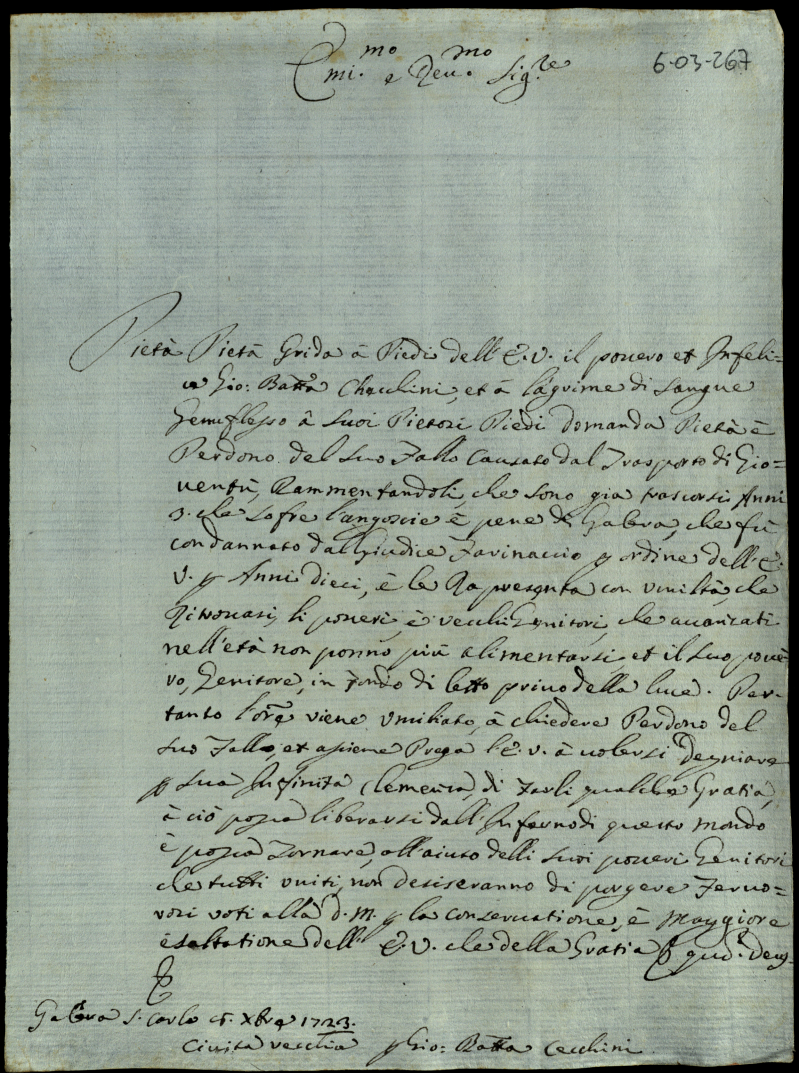 6-03-267
Emi.mo e Reu.mo Sig.re
Pietà Pietà Grida à Piedi dell' E. V. il pouero et Infeli=
ce Gio: Batta Checchini, et à lagrime di Sangue
Genuflesso à Suoi Pietosi Piedi domanda Pietà è
Perdono del Suo Fallo Causato dal Trasporto di Gio=
ventù, Rammentandoli, che sono gia trascorsi Anni
3. che Sofre l'angoscie è pene di Galera, che fù
condannato dal Giudice Farinaccio p ordine dell' E.
V. p Anni Dieci, è le Rapresenta con vmiltà, che
Ritrouasi, li poueri, è vecchi Genitori, che auanzati
nell'età non ponno più alimentarsi, et il Suo poue
ro, Genitore, in Fondo di letto priuo della luce. Per=
tanto l'ore viene vmiliato, à chiedere Perdono del
Suo Fallo, et asieme Prega l'E. V. à uolersi Degniare
p Sua Infinita Clemenza, di Farli qualche Gratia,
à ciò possa liberarsi dall' Inferno di questo mondo
è possa Tornare, all'aiuto delli Suoi poueri Genitori
che tutti vniti, non desiseranno di porgere Feruo=
rosi voti alla D. M. p la conseruatione, è Maggiore
esaltatione dell' E. V. che della Gratia
Galera S. Carlo Xbre 1723.
Ciuità vecchia p Gio: Batta Cecchini